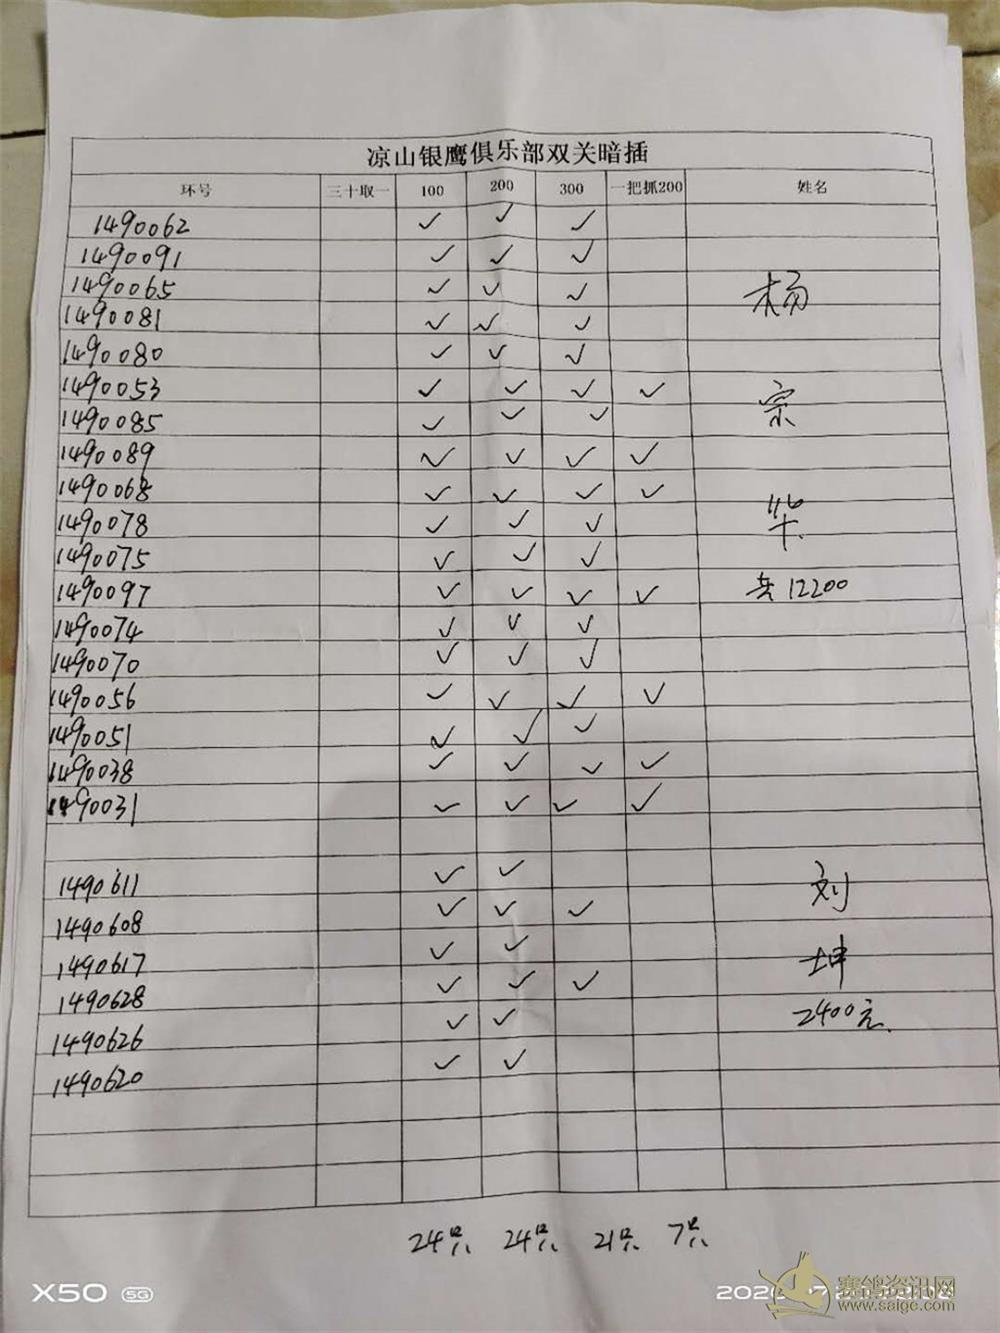 凉山银鹰俱乐部双关暗插
环号 三十取一 100 200 300 一把抓200 姓名
1490062 ✓ ✓ ✓
1490091 ✓ ✓ ✓
1490065 ✓ ✓ ✓ 杨
1490081 ✓ ✓ ✓
1490080 ✓ ✓ ✓
1490053 ✓ ✓ ✓ ✓ 宗
1490085 ✓ ✓ ✓
1490089 ✓ ✓ ✓ ✓
1490068 ✓ ✓ ✓ ✓ 华
1490078 ✓ ✓ ✓
1490075 ✓ ✓ ✓
1490097 ✓ ✓ ✓ ✓ 共12200
1490074 ✓ ✓ ✓
1490070 ✓ ✓ ✓
1490056 ✓ ✓ ✓ ✓
1490051 ✓ ✓ ✓
1490038 ✓ ✓ ✓ ✓
1490031 ✓ ✓ ✓ ✓
1490611 ✓ ✓ 刘
1490608 ✓ ✓ ✓
1490617 ✓ ✓ 坤
1490628 ✓ ✓ ✓
1490626 ✓ ✓ 2400元
1490620 ✓ ✓
24只 24只 21只 7只
X50 5G
赛鸽资讯网
www.saige.com